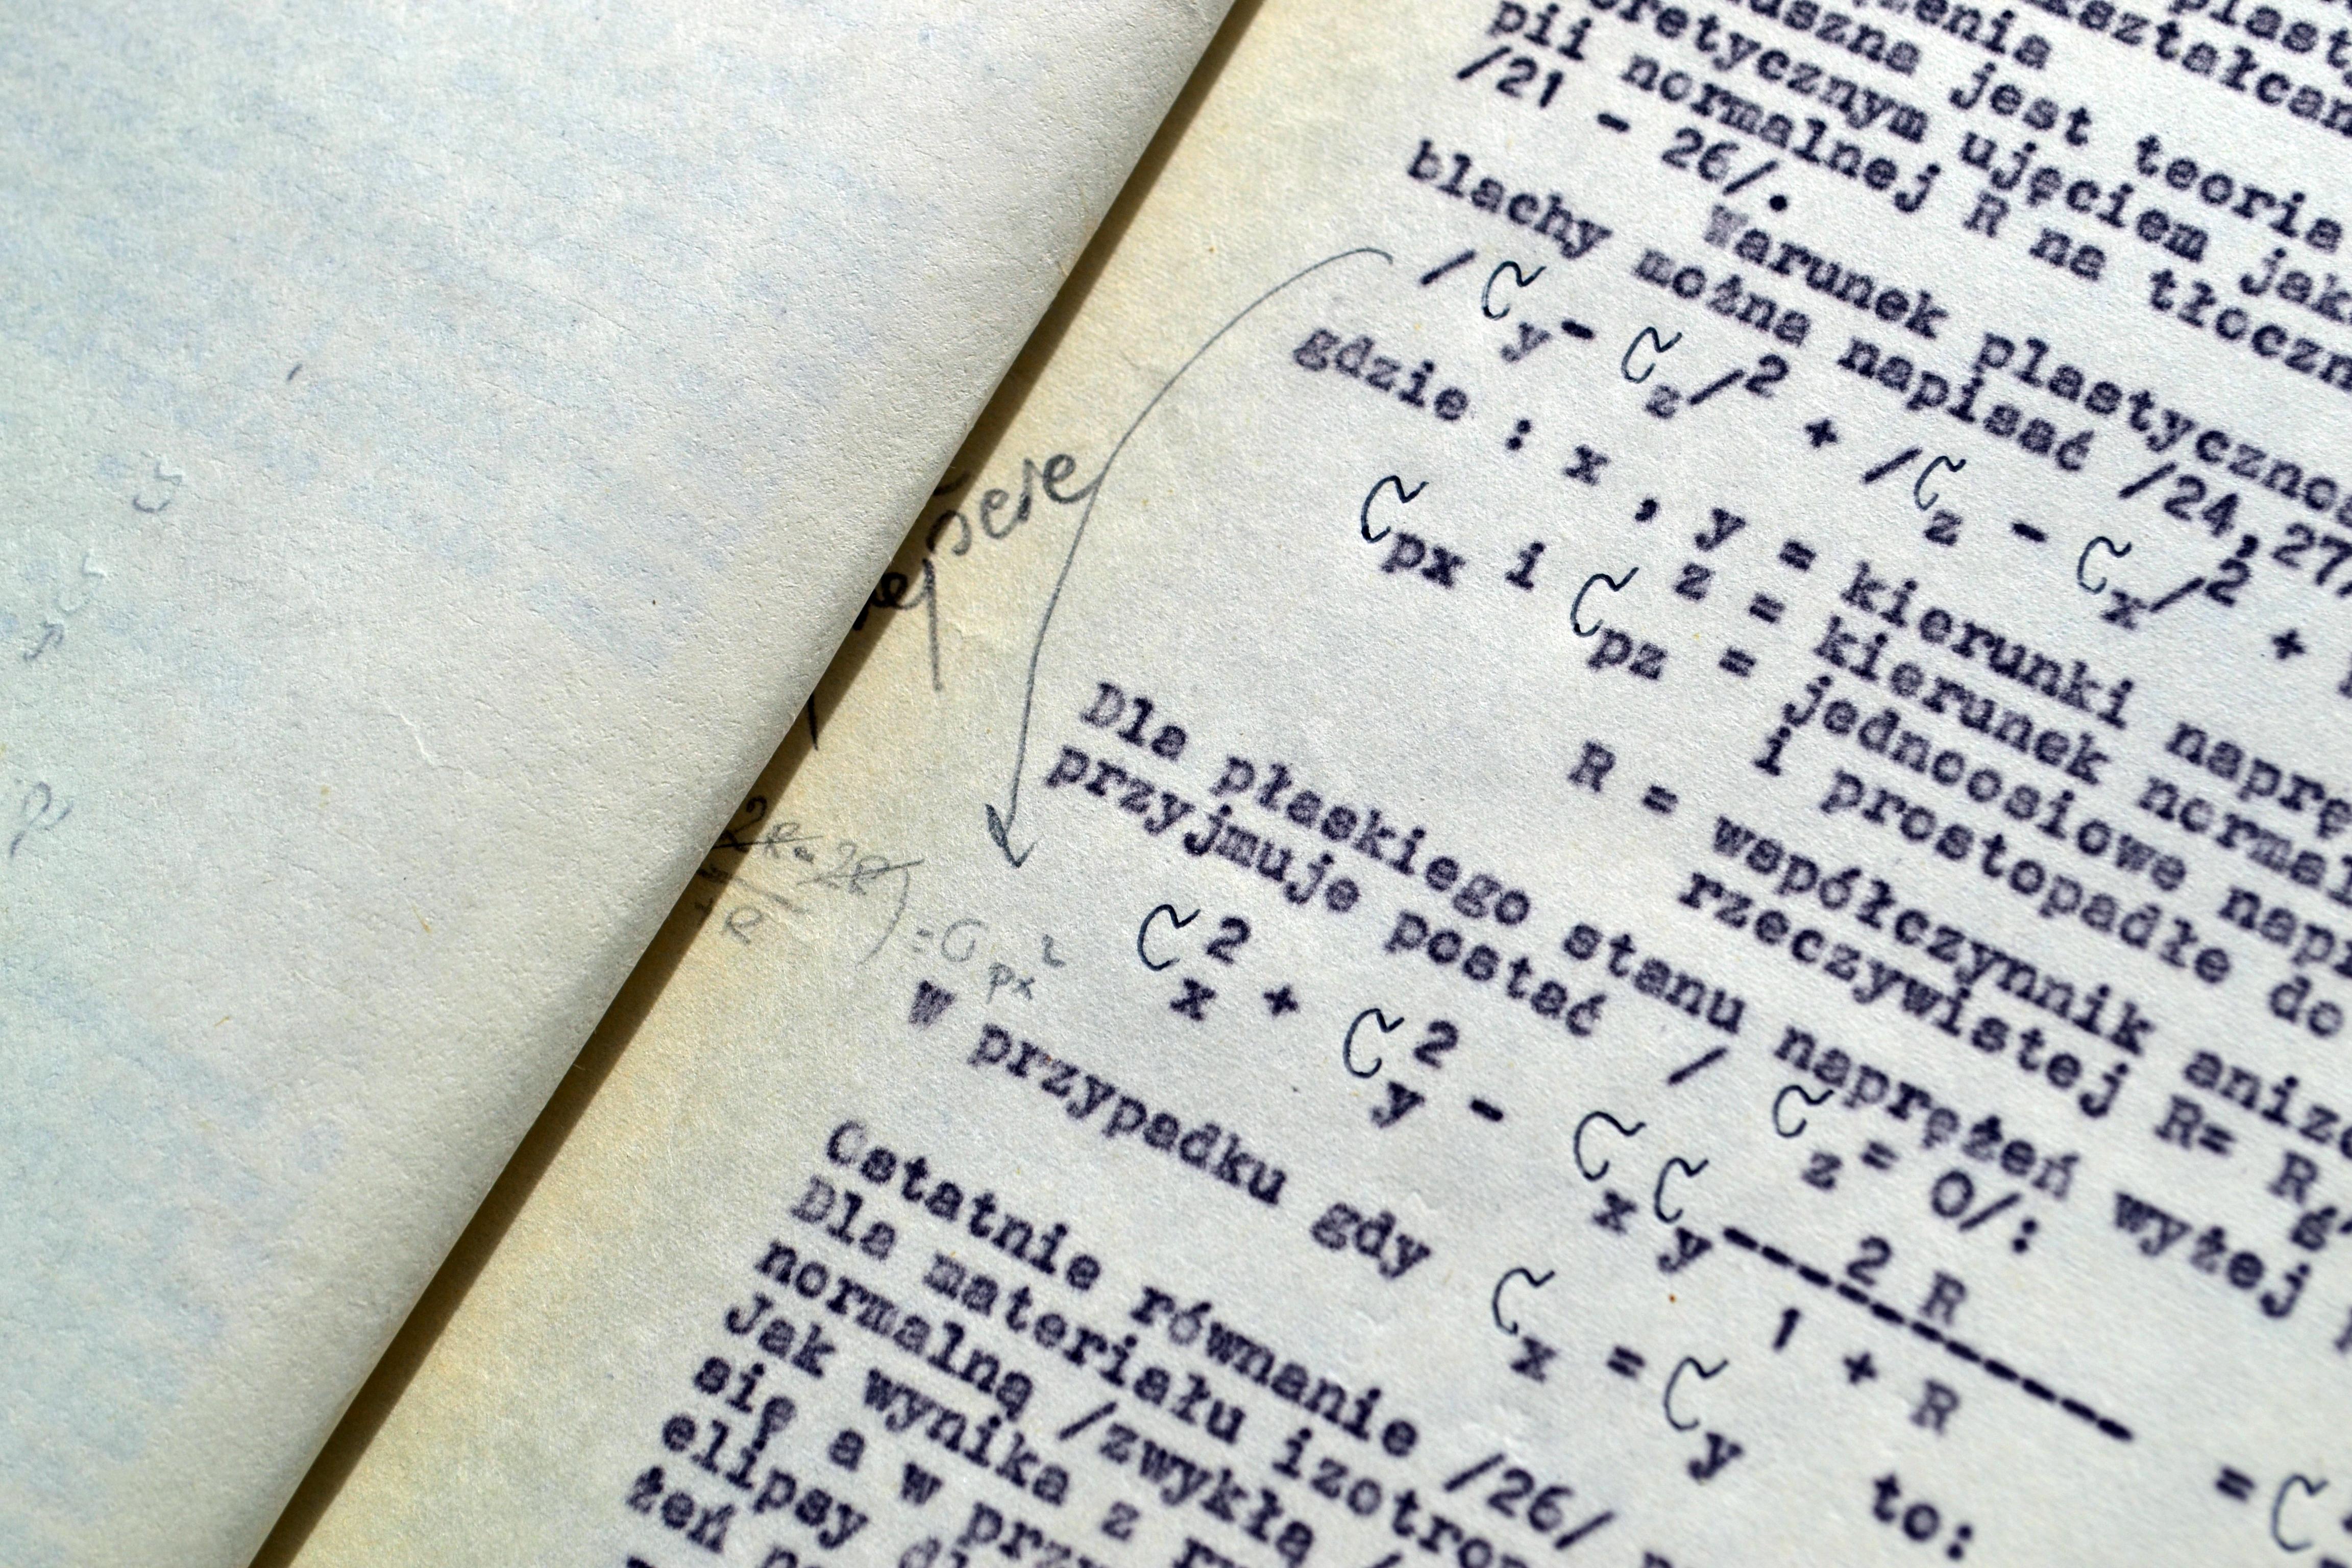 plast
enia kształcan
uszna jest teoria
retycznym ujęciem jak
pii normalnej R na tłoczn
/21 - 26/.
Warunek plastyczno
blachy można napisać /24,27
/σy - σz/² + /σz - σx/² +
gdzie : x , y = kierunki naprę
z = kierunek normal
σpx i σpz = jednoosiowe napr
i prostopadłe do
R = współczynnik anizo
rzeczywistej R= R
Dla płaskiego stanu naprężeń wyżej
przyjmuje postać / σz= 0/:
σx² + σy² - σxσy 2 R / 1 + R = σ
W przypadku gdy σx = σy to:
Ostatnie równanie /26/
Dla materiału izotrop
normalną /zwykłą /
Jak wynika z r
się a w prz
elipsy d
żeń
2R-2R
=σpx²